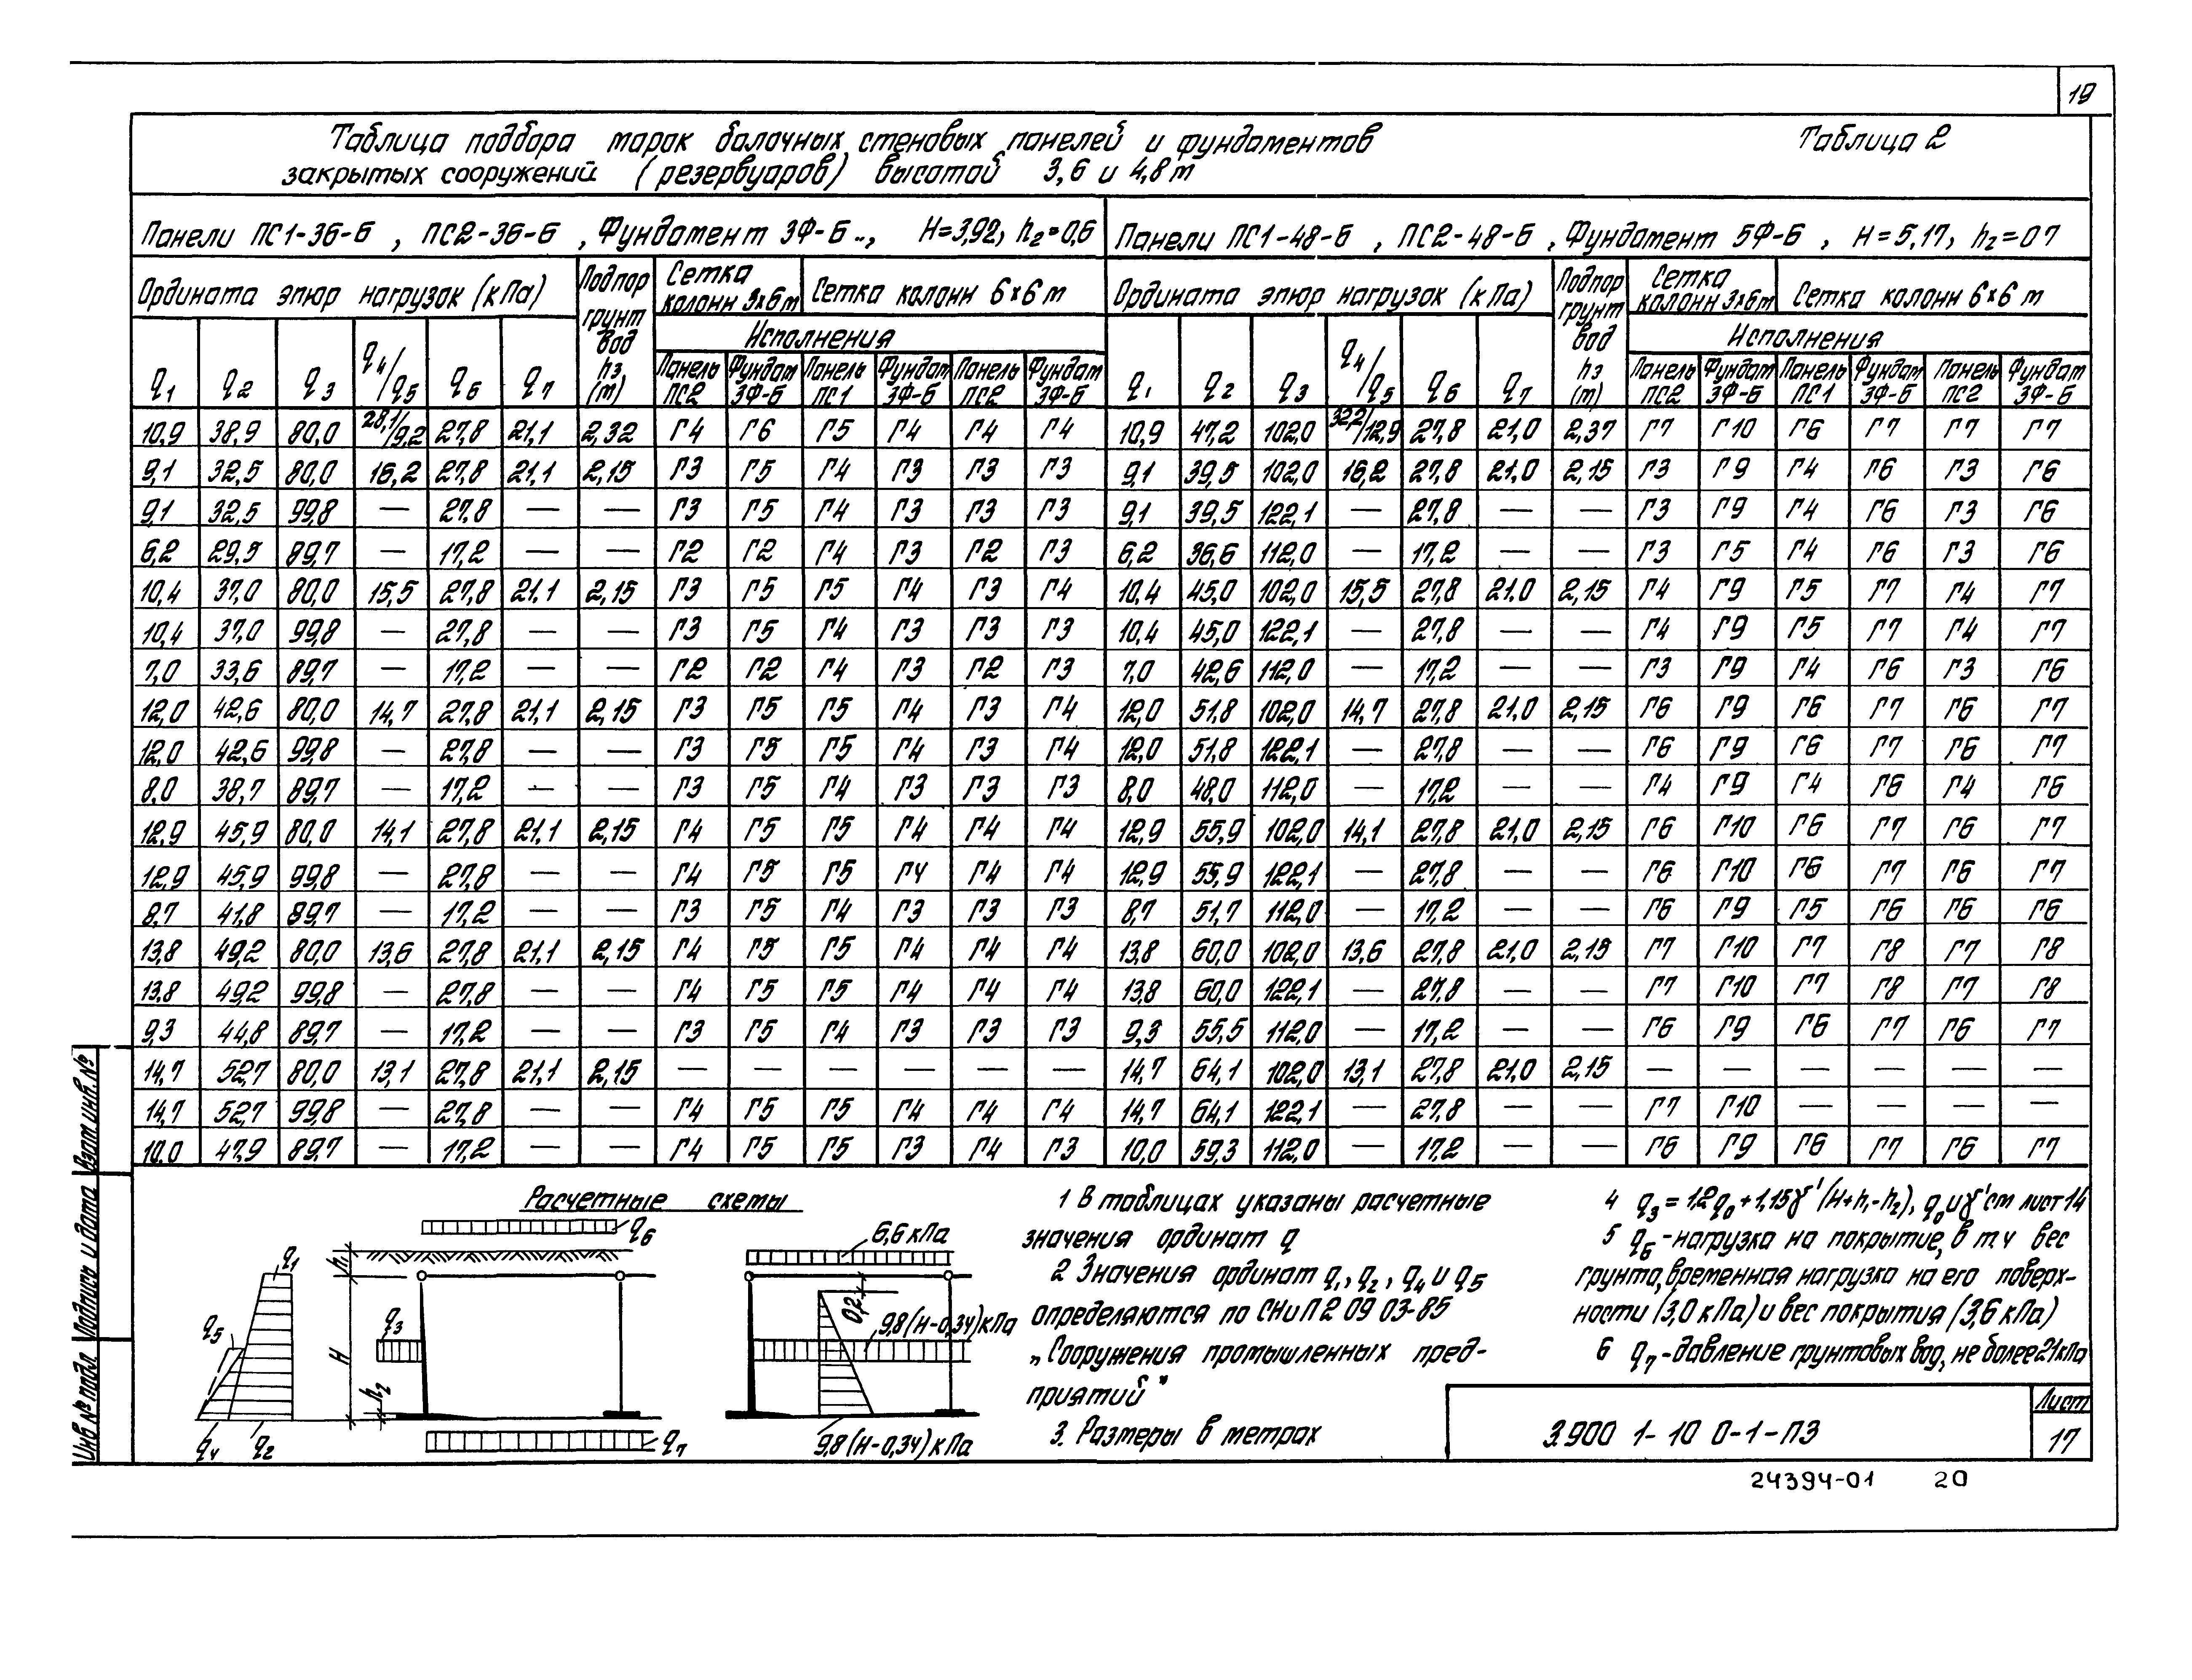 19
Таблица подбора марок балочных стеновых панелей и фундаментов Таблица 2
закрытых сооружений (резервуаров) высотой 3,6 и 4,8 м
Панели ПС1-36-Б , ПС2-36-Б , Фундамент 3Ф-Б.., H=3,92, h2=0,6 Панели ПС1-48-Б , ПС2-48-Б , Фундамент 5Ф-Б , H=5,17, h2=0 7
Ордината эпюр нагрузок (кПа) Подпор грунт вод h3 (м) Сетка колонн 3х6м Сетка колонн 6х6 м Ордината эпюр нагрузок (кПа) Подпор грунт вод h3 (м) Сетка колонн 3х6м Сетка колонн 6х6 м
Исполнения Исполнения
q1 q2 q3 q4/q5 q6 q7 Панель ПС2 Фундам 3Ф-Б Панель ПС1 Фундам 3Ф-Б Панель ПС2 Фундам 3Ф-Б q1 q2 q3 q4/q5 q6 q7 Панель ПС2 Фундам 3Ф-Б Панель ПС1 Фундам 3Ф-Б Панель ПС2 Фундам 3Ф-Б
10,9 38,9 80,0 28,1/9,2 27,8 21,1 2,32 Г4 Г6 Г5 Г4 Г4 Г4 10,9 47,2 102,0 32,2/12,9 27,8 21,0 2,37 Г7 Г10 Г6 Г7 Г7 Г7
9,1 32,5 80,0 16,2 27,8 21,1 2,15 Г3 Г5 Г4 Г3 Г3 Г3 9,1 39,5 102,0 16,2 27,8 21,0 2,15 Г3 Г9 Г4 Г6 Г3 Г6
9,1 32,5 99,8 — 27,8 — — Г3 Г5 Г4 Г3 Г3 Г3 9,1 39,5 122,1 — 27,8 — — Г3 Г9 Г4 Г6 Г3 Г6
6,2 29,5 89,7 — 17,2 — — Г2 Г2 Г4 Г3 Г2 Г3 6,2 36,6 112,0 — 17,2 — — Г3 Г5 Г4 Г6 Г3 Г6
10,4 37,0 80,0 15,5 27,8 21,1 2,15 Г3 Г5 Г5 Г4 Г3 Г4 10,4 45,0 102,0 15,5 27,8 21,0 2,15 Г4 Г9 Г5 Г7 Г4 Г7
10,4 37,0 99,8 — 27,8 — — Г3 Г5 Г4 Г3 Г3 Г3 10,4 45,0 122,1 — 27,8 — — Г4 Г9 Г5 Г7 Г4 Г7
7,0 33,6 89,7 — 17,2 — — Г2 Г2 Г4 Г3 Г2 Г3 7,0 42,6 112,0 — 17,2 — — Г3 Г9 Г4 Г6 Г3 Г6
12,0 42,6 80,0 14,7 27,8 21,1 2,15 Г3 Г5 Г5 Г4 Г3 Г4 12,0 51,8 102,0 14,7 27,8 21,0 2,15 Г6 Г9 Г6 Г7 Г6 Г7
12,0 42,6 99,8 — 27,8 — — Г3 Г5 Г5 Г4 Г3 Г4 12,0 51,8 122,1 — 27,8 — — Г6 Г9 Г6 Г7 Г6 Г7
8,0 38,7 89,7 — 17,2 — — Г3 Г5 Г4 Г3 Г3 Г3 8,0 48,0 112,0 — 17,2 — — Г4 Г9 Г4 Г6 Г4 Г6
12,9 45,9 80,0 14,1 27,8 21,1 2,15 Г4 Г5 Г5 Г4 Г4 Г4 12,9 55,9 102,0 14,1 27,8 21,0 2,15 Г6 Г10 Г6 Г7 Г6 Г7
12,9 45,9 99,8 — 27,8 — — Г4 Г5 Г5 Г4 Г4 Г4 12,9 55,9 122,1 — 27,8 — — Г6 Г10 Г6 Г7 Г6 Г7
8,7 41,8 89,7 — 17,2 — — Г3 Г5 Г4 Г3 Г3 Г3 8,7 51,7 112,0 — 17,2 — — Г6 Г9 Г5 Г6 Г6 Г6
13,8 49,2 80,0 13,6 27,8 21,1 2,15 Г4 Г5 Г5 Г4 Г4 Г4 13,8 60,0 102,0 13,6 27,8 21,0 2,15 Г7 Г10 Г7 Г8 Г7 Г8
13,8 49,2 99,8 — 27,8 — — Г4 Г5 Г5 Г4 Г4 Г4 13,8 60,0 122,1 — 27,8 — — Г7 Г10 Г7 Г8 Г7 Г8
9,3 44,8 89,7 — 17,2 — — Г3 Г5 Г4 Г3 Г3 Г3 9,3 55,5 112,0 — 17,2 — — Г6 Г9 Г6 Г7 Г6 Г7
14,7 52,7 80,0 13,1 27,8 21,1 2,15 — — — — — — 14,7 64,1 102,0 13,1 27,8 21,0 2,15 — — — — — —
14,7 52,7 99,8 — 27,8 — — Г4 Г5 Г5 Г4 Г4 Г4 14,7 64,1 122,1 — 27,8 — — Г7 Г10 — — — —
10,0 47,9 89,7 — 17,2 — — Г4 Г5 Г5 Г3 Г4 Г3 10,0 59,3 112,0 — 17,2 — — Г6 Г9 Г6 Г7 Г6 Г7
Расчетные схемы
q6
6,6 кПа
q1
h1
q3
q5
H
h2
0,2
9,8(H-0,34)кПа
q4 q2
q7
9,8(H-0,34)кПа
1 В таблицах указаны расчетные
значения ординат q
2 Значения ординат q1, q2, q4 и q5
определяются по СНиП 2 09 03-85
„Сооружения промышленных пред-
приятий"
3. Размеры в метрах
4 q3 = 1,2q0 + 1,15γ'(H+h1-h2), q0 и γ' см лист 14
5 q6 - нагрузка на покрытие, в т.ч вес
грунта, временная нагрузка на его поверх-
ности (3,0 кПа) и вес покрытия (3,6 кПа)
6 q7 - давление грунтовых вод, не более 21кПа
3.900 1-10 0-1-ПЗ
Лист
17
Инв № подл Подпись и дата Взам инв. №
24394-01 20